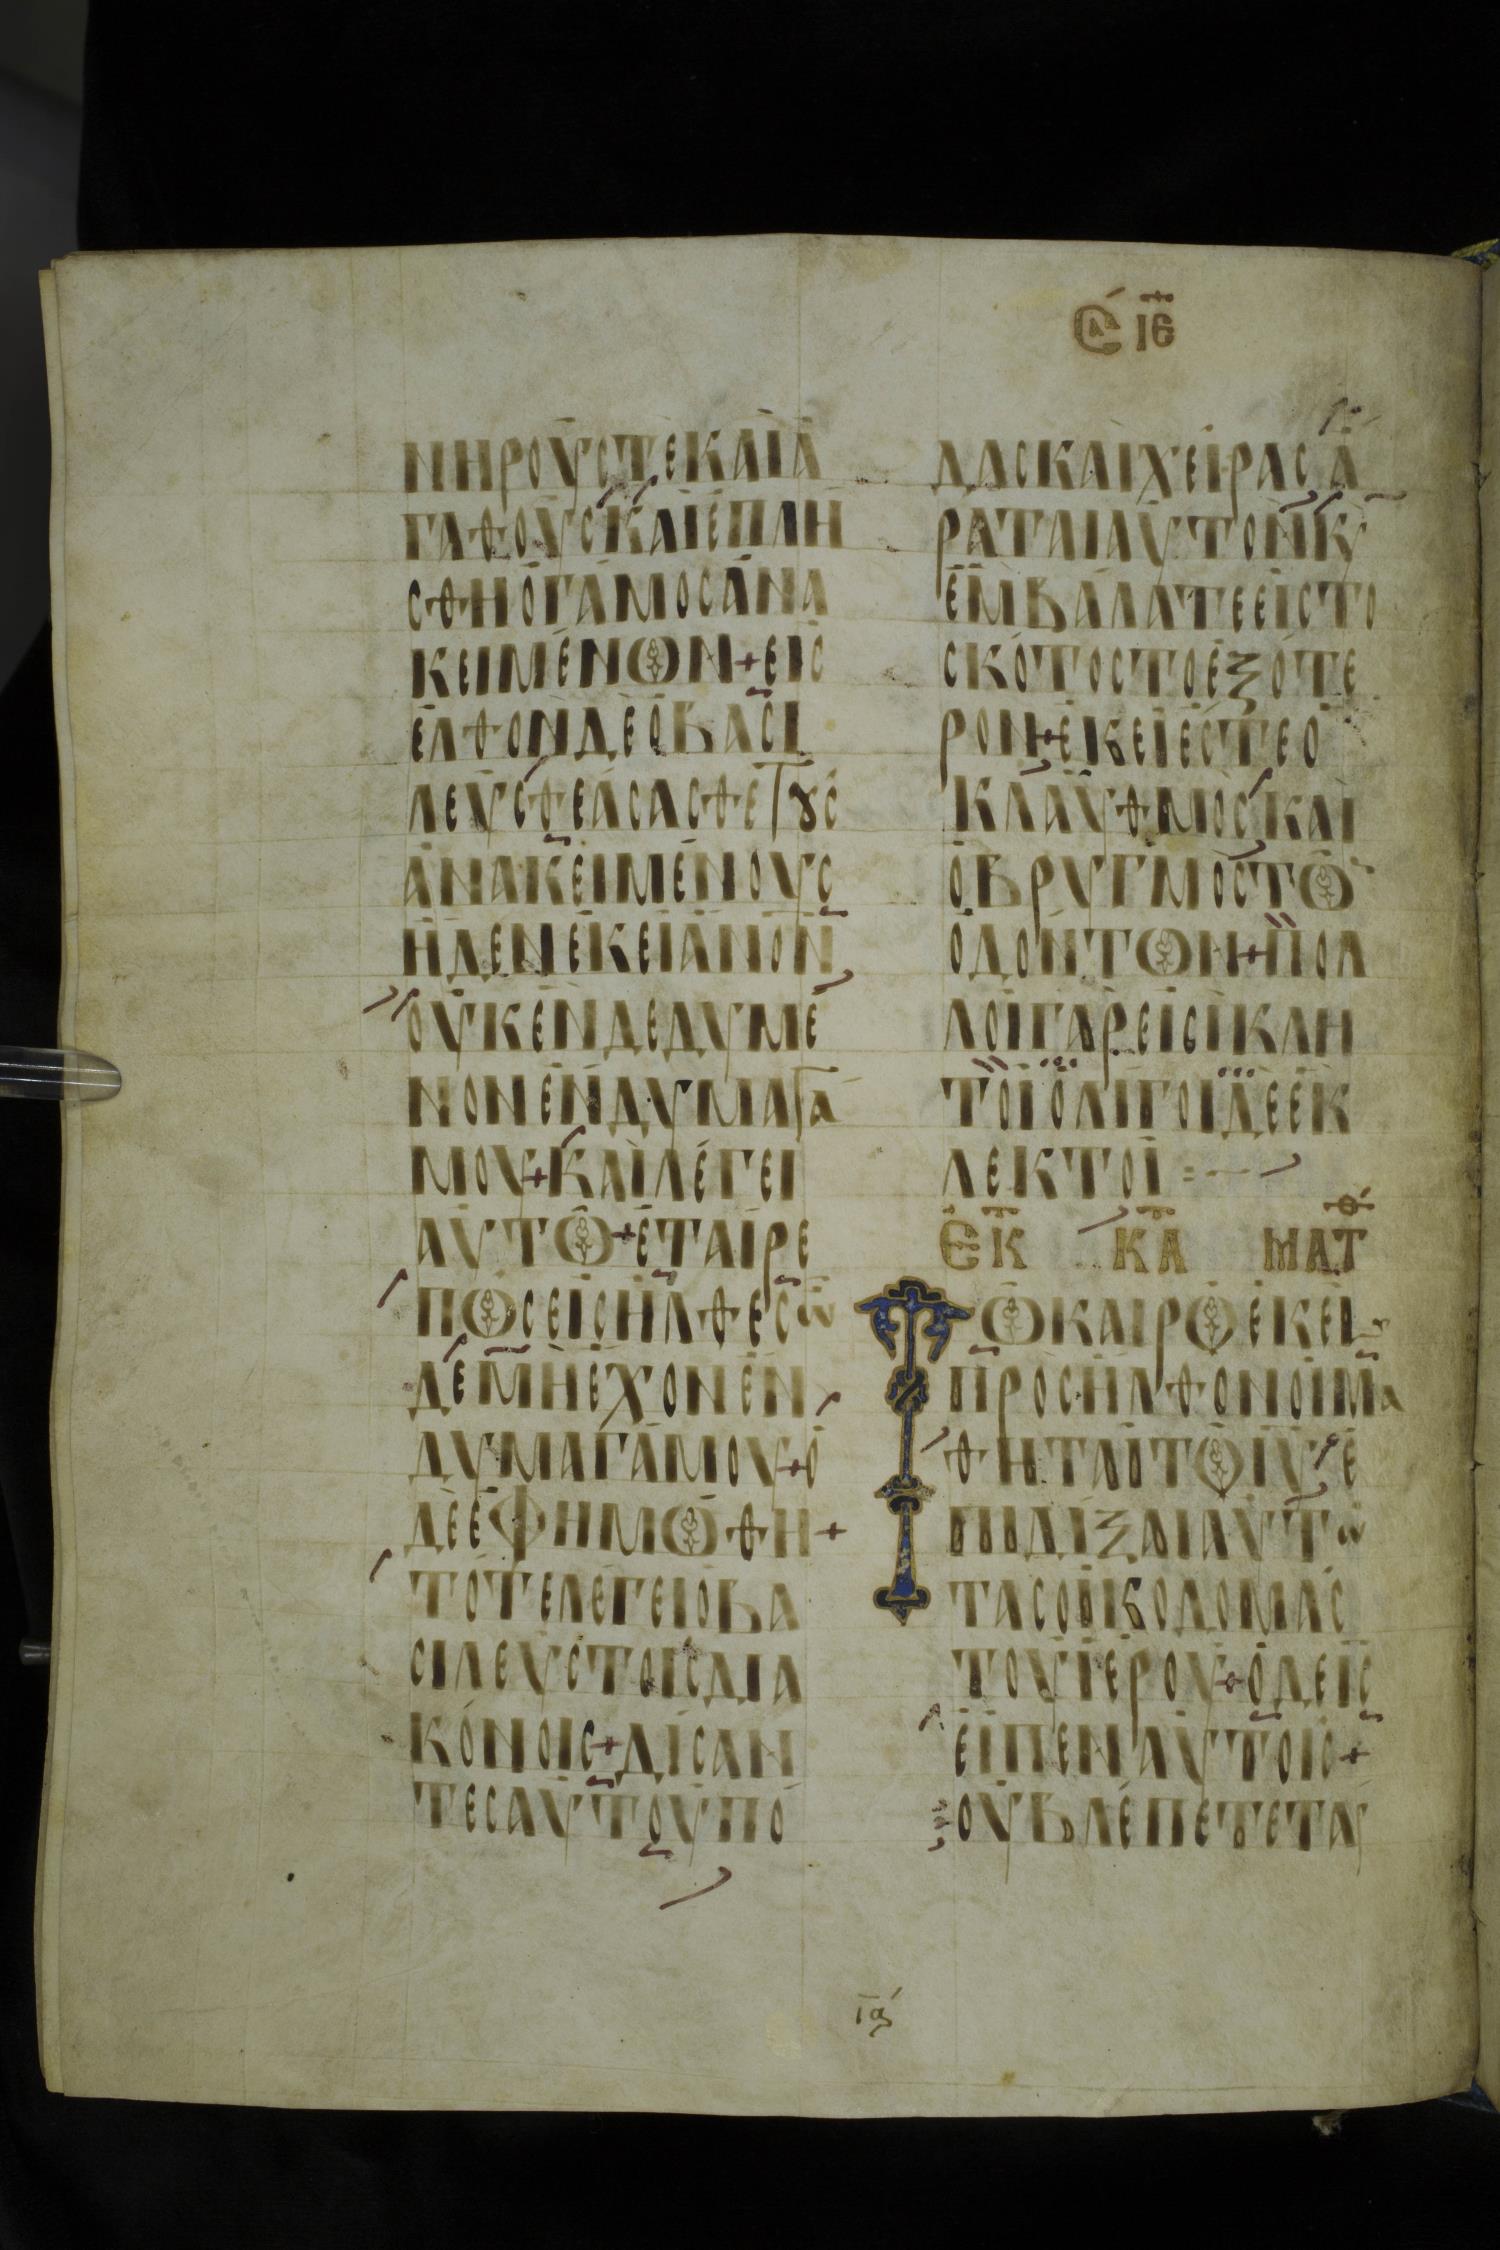 ΝΗΡΟΥϹΤΕΚΑΙΑ
ΓΑΘΟΥϹΚΑΙΕΠΛΗ
ϹΘΗΟΓΑΜΟϹΑΝΑ
ΚΕΙΜΕΝΩΝ+ΕΙϹ
ΕΛΘΟΝΔΕΟΒΑϹΙ
ΛΕΥϹΘΕΑϹΑϹΘΕΤȣϹ
ΑΝΑΚΕΙΜΕΝΟΥϹ
ΗΔΕΝΕΚΕΙΑΝΟΝ
ΟΥΚΕΝΔΕΔΥΜΕ
ΝΟΝΕΝΔΥΜΑΓΑ
ΜΟΥ+ΚΑΙΛΕΓΕΙ
ΑΥΤΩ+ΕΤΑΙΡΕ
ΠΩϹΕΙϹΗΛΘΕϹω
ΔΕΜΗΕΧΟΝΕΝ
ΔΥΜΑΓΑΜΟΥ+Ο
ΔΕΕΦΗΜΩΘΗ+
ΤΟΤΕΛΕΓΕΙΟΒΑ
ϹΙΛΕΥϹΤΟΙϹΔΙΑ
ΚΟΝΟΙϹ+ΔΙϹΑΝ
ΤΕϹΑΥΤΟΥΠΟ
ϹΑ ΙΕ
ΔΑϹΚΑΙΧΕΙΡΑϹΑ
ΡΑΤΑΙΑΥΤΟΝΚ
ΕΜΒΑΛΑΤΕΕΙϹΤΟ
ϹΚΟΤΟϹΤΟΕΞΟΤΕ
ΡΟΝ+ΕΚΕΙΕϹΤΕΟ
ΚΛΑΥΘΜΟϹΚΑΙ
ΟΒΡΥΓΜΟϹΤΩ
ΟΔΟΝΤΩΝ+ΠΟΛ
ΛΟΙΓΑΡΕΙϹΙΚΛΗ
ΤΟΙΟΛΙΓΟΙΔΕΕΚ
ΛΕΚΤΟΙ
ΕΚ ΚΑ ΜΑΤΘ
ΤΩΚΑΙΡΩΕΚΕΙ
ΠΡΟϹΗΛΘΟΝΟΙΜΑ
ΘΗΤΑΙΤΩΙΥΕ
ΠΙΔΙΞΑΙΑΥΤω
ΤΑϹΟΙΚΟΔΟΜΑϹ
ΤΟΥΙΕΡΟΥ+ΟΔΕΙϹ
ΕΙΠΕΝΑΥΤΟΙϹ+
ΟΥΒΛΕΠΕΤΕΤΑΥ
ια